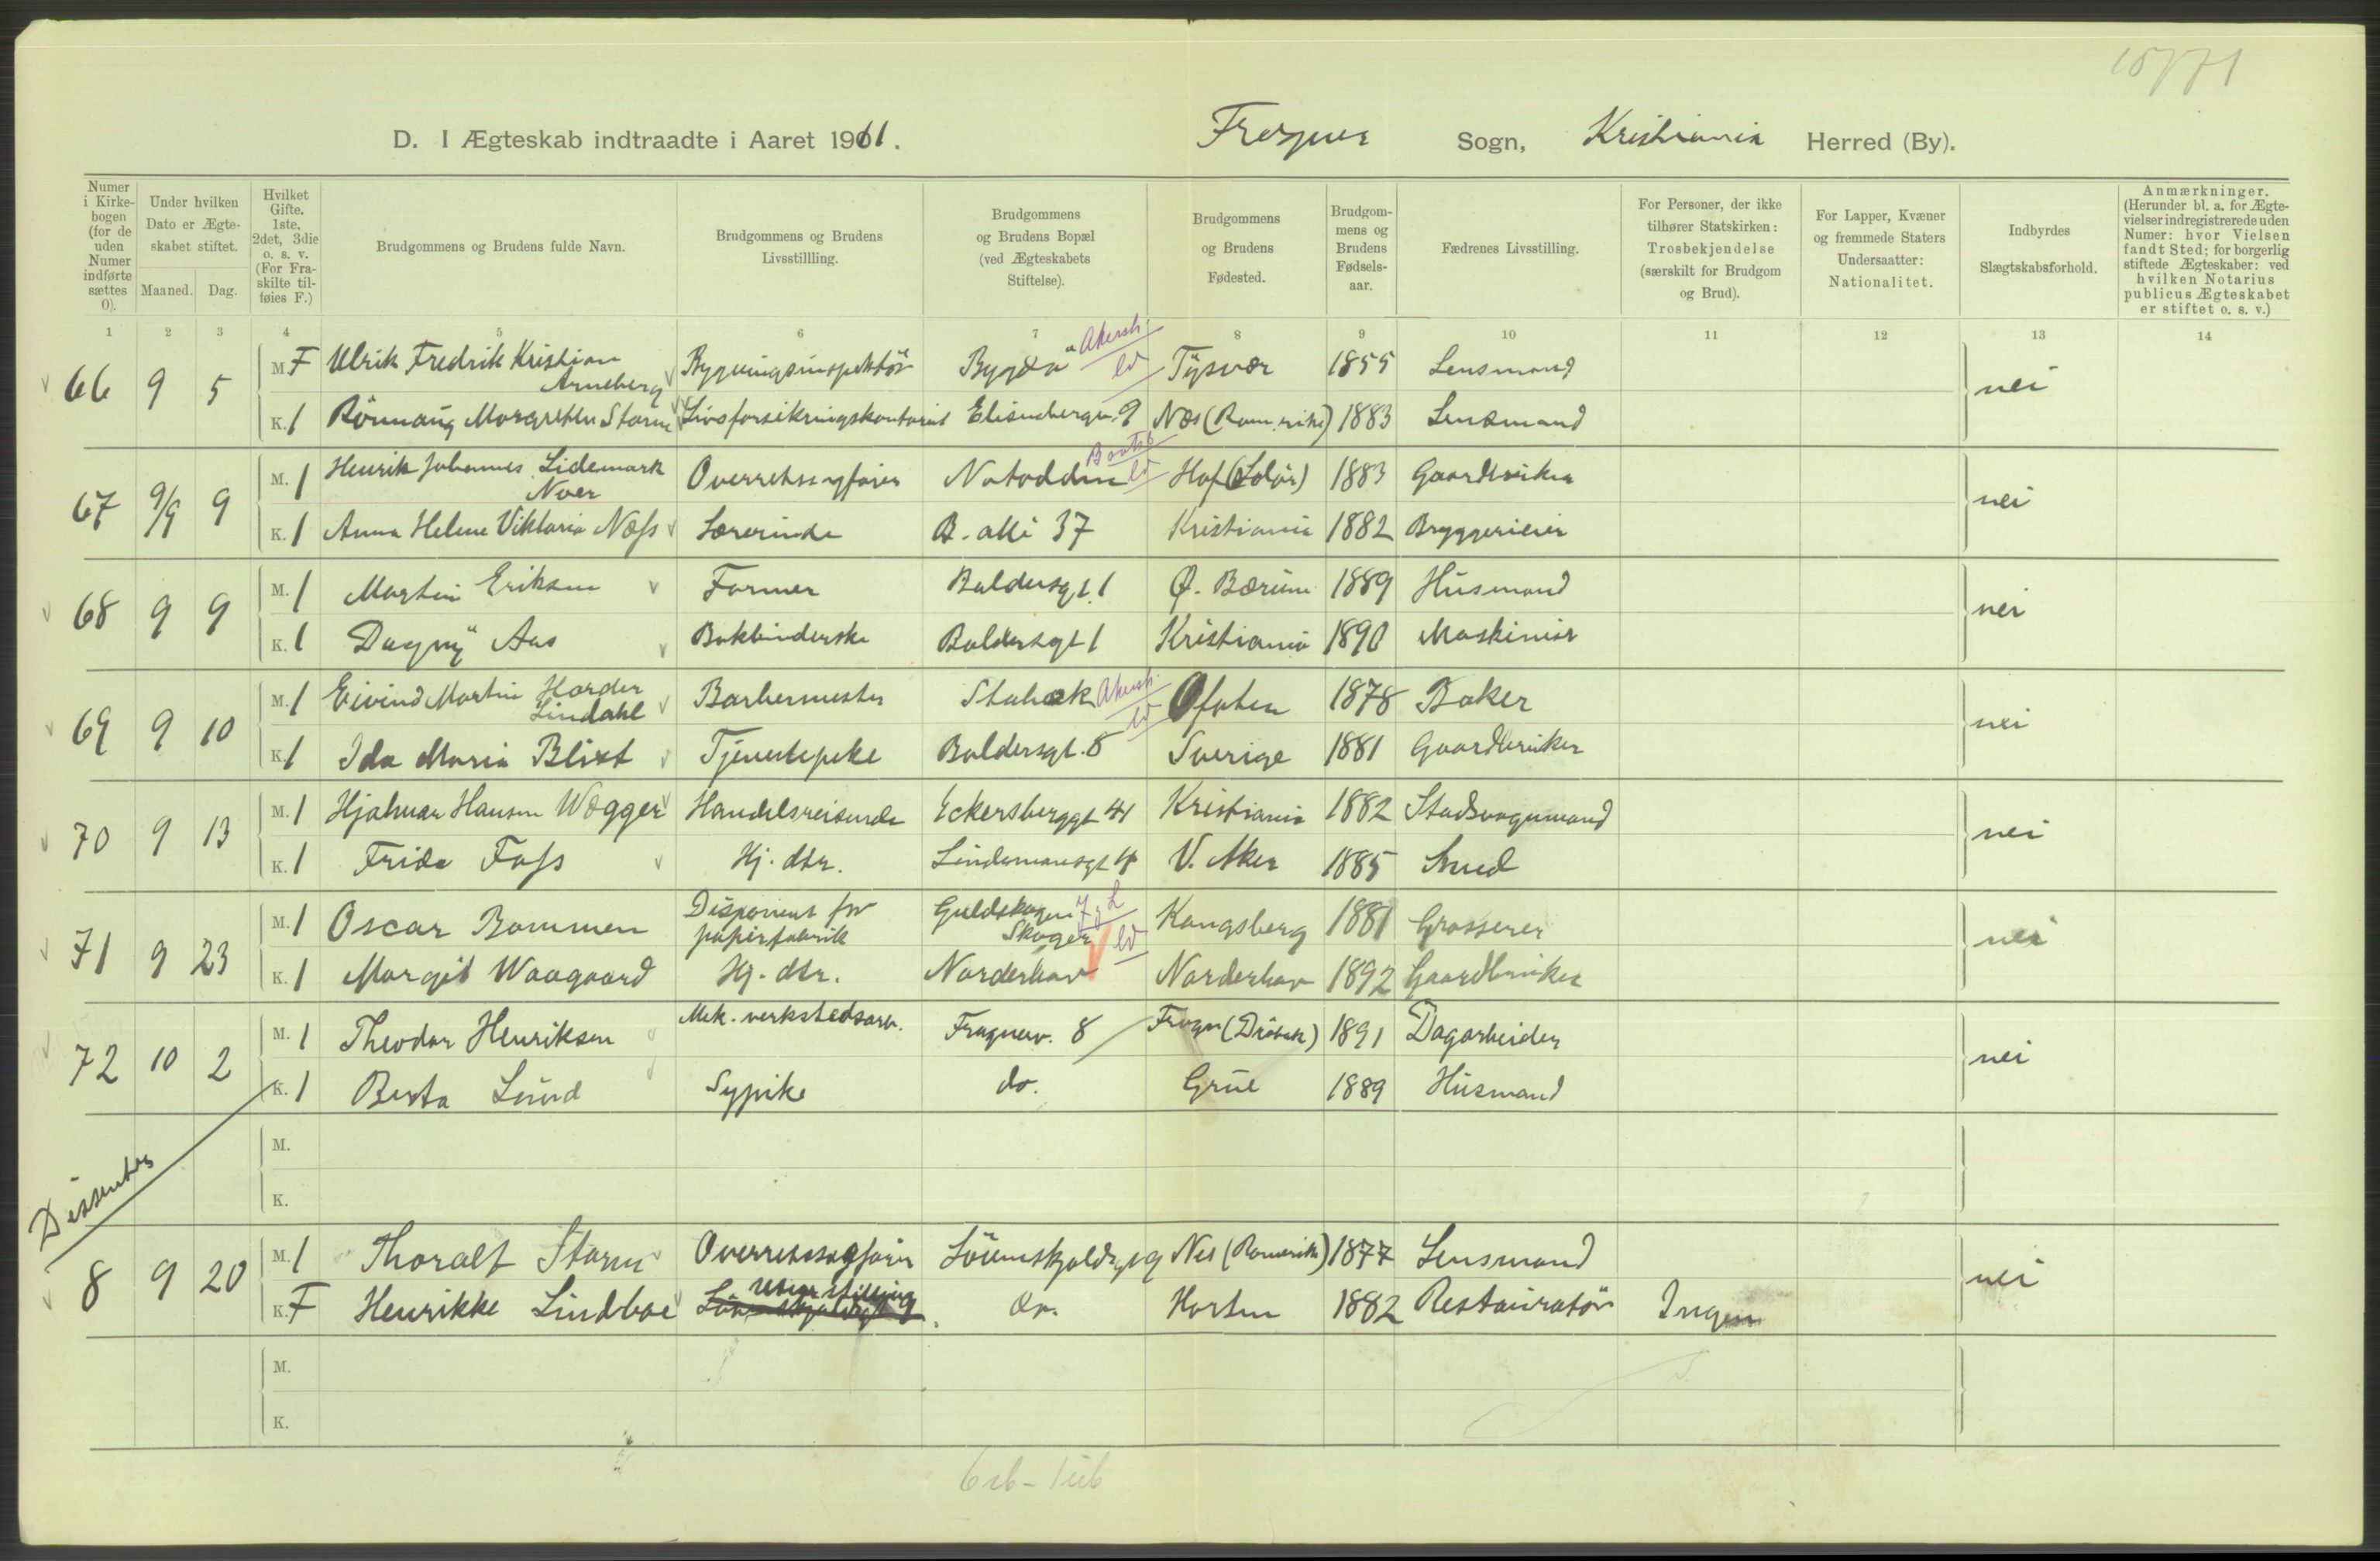 15771
D. I Ægteskab indtraadte i Aaret 1911. Frogner Sogn, Kristiania Herred (By).
Numer i Kirkebogen (for de uden Numer indførte sættes 0).
Under hvilken Dato er Ægteskabet stiftet.
Maaned. Dag.
Hvilket Gifte. 1ste. 2det, 3die o. s. v. (For Fraskilte tilføies F.)
Brudgommens og Brudens fulde Navn.
Brudgommens og Brudens Livsstillling.
Brudgommens og Brudens Bopæl (ved Ægteskabets Stiftelse).
Brudgommens og Brudens Fødested.
Brudgommens og Brudens Fødselsaar.
Fædrenes Livsstilling.
For Personer, der ikke tilhører Statskirken: Trosbekjendelse (særskilt for Brudgom og Brud).
For Lapper, Kvæner og fremmede Staters Undersaatter: Nationalitet.
Indbyrdes Slægtskabsforhold.
Anmærkninger. (Herunder bl. a. for Ægtevielser indregistrerede uden Numer: hvor Vielsen fandt Sted; for borgerlig stiftede Ægteskaber: ved hvilken Notarius publicus Ægteskabet er stiftet o. s. v.)
1 2 3 4 5 6 7 8 9 10 11 12 13 14
66 9 5 M. F Ulrik Fredrik Kristian Arneberg Bygningsinspektör Bygdø Akersh. ld Tÿsvær 1855 Lensmand nei
K. 1 Rönnaug Margrethe Storm Livsforsikringskontorist Elisenbergv. 9 Næs (Rom.rike) 1883 Lensmand
67 9/9 9 M. 1 Henrik Johannes Lidemark Noer Overretssagfører Notodden ld Hof (Solör) 1883 Gaardbruker nei
K. 1 Anna Helene Viktoria Næss Lærerinde B. alle 37 Kristiania 1882 Bryggerieier
68 9 9 M. 1 Martin Eriksen Former Baldersgt. 1 Ø. Bærum 1889 Husmand nei
K. 1 Dagny Aas Bokbinderske Baldersgt 1 Kristiania 1890 Maskinist
69 9 10 M. 1 Eivind Martin Harder Lindahl Barbermester Stabæk Akersh. ld Ofoten 1878 Baker nei
K. 1 Ida Maria Blixt Tjenestepike Baldersgt. 8 Sverige 1881 Gaardbruker
70 9 13 M. 1 Hjalmar Hansen Wægger Handelsreisende Eckersberggt 41 Kristiania 1882 Stadsvognmand nei
K. 1 Frida Foss Hj. dtr. Lindemansgt 4 V. Aker 1885 Smed
71 9 23 M. 1 Oscar Bommen Disponent for papirfabrik Guldskogen Skoger ld Kongsberg 1881 Grosserer nei
K. 1 Margit Waagaard Hj. dtr. Norderhov Norderhov 1892 Gaardbruker
72 10 2 M. 1 Theodor Henriksen Mek. verkstedsarb. Frognerv. 8 Frogn (Dröbak) 1891 Dagarbeider nei
K. 1 Berta Lund Sypike do. Grue 1889 Husmand
M.
K.
Dissenter
8 9 20 M. 1 Thoralf Storm Overretssagfører Lövenskjoldsgt 9 Nes (Romerike) 1877 Lensmand nei
K. F Henrikke Lindboe uten stilling do. Horten 1882 Restauratör Ingen
M.
K.